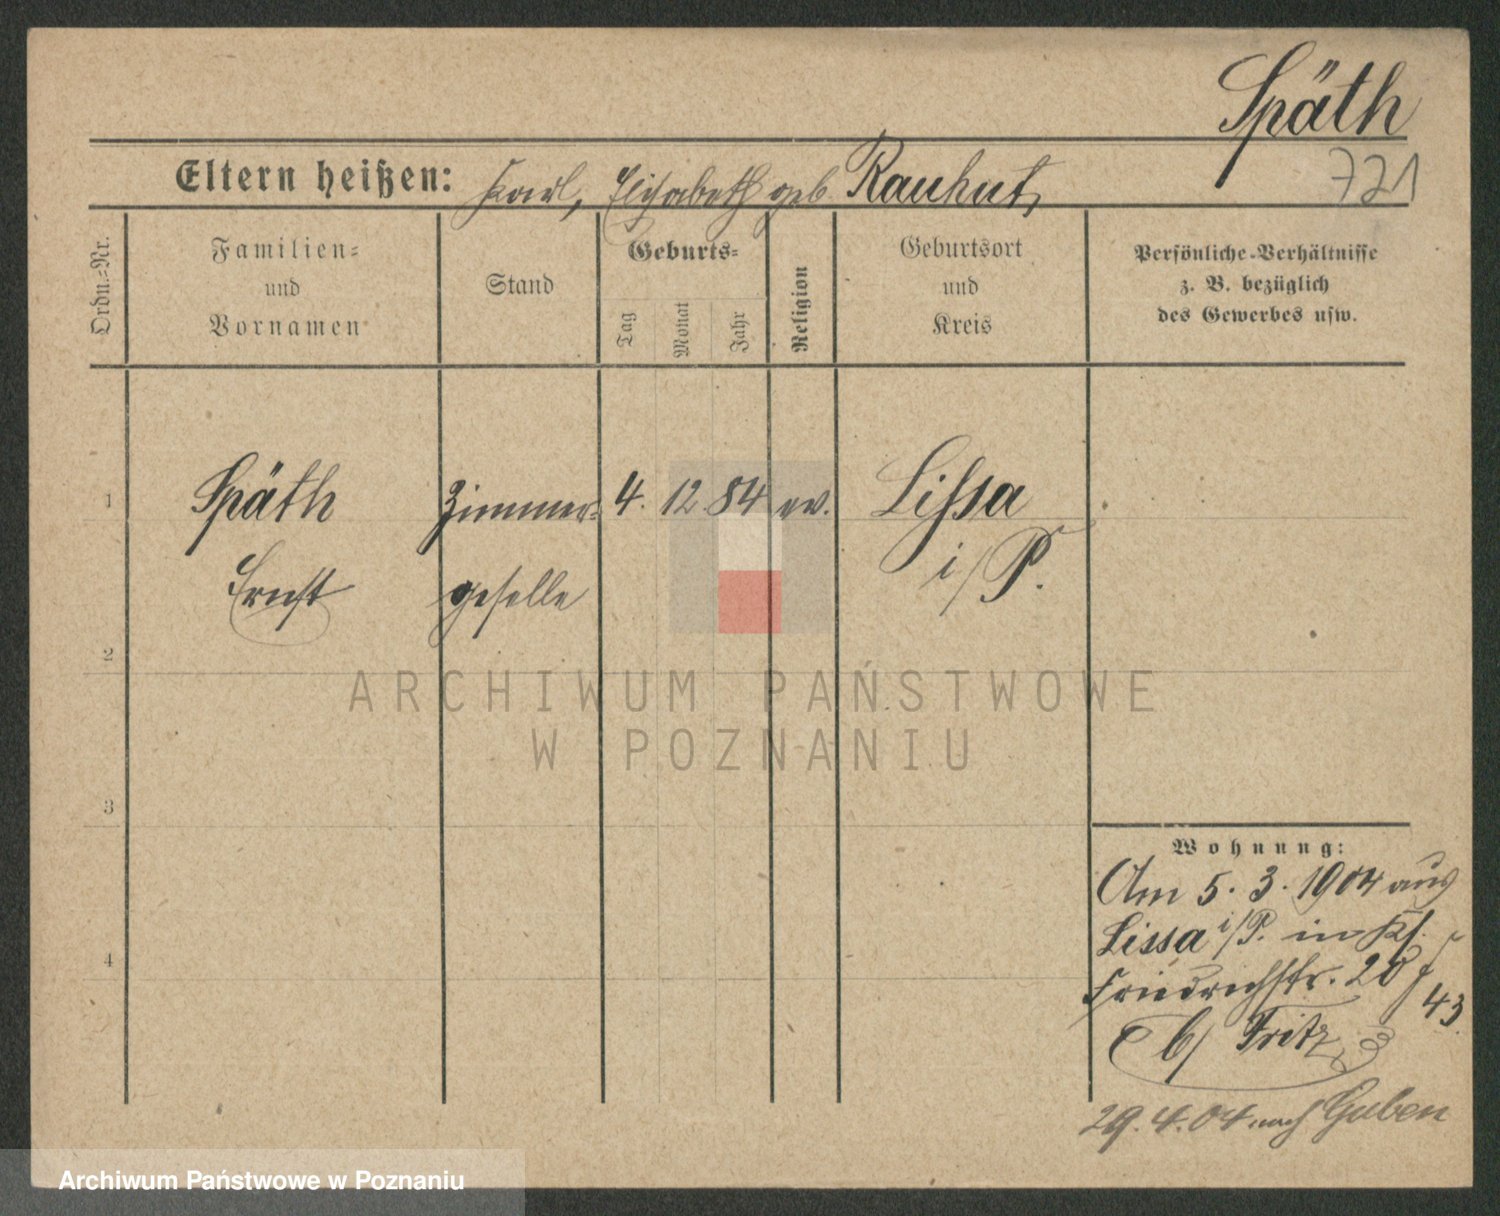 Späth
Eltern heißen: Karl, Elisabeth geb Rauhut,
721
Ordn.-Nr.
Familien-
und
Vornamen
Stand
Geburts-
Tag
Monat
Jahr
Religion
Geburtsort
und
Kreis
Persönliche Verhältnisse
z. B. bezüglich
des Gewerbes usw.
1 Späth Zimmer- 4. 12. 84 ev. Lissa
Ernst geselle i/P.
2
3
4
Wohnung:
Am 5. 3. 1904 aus
Lissa i/P. in
Friedrichstr. 28
43.
b/ Fritz
29. 4. 04 nach Guben
ARCHIWUM PAŃSTWOWE
W POZNANIU
Archiwum Państwowe w Poznaniu